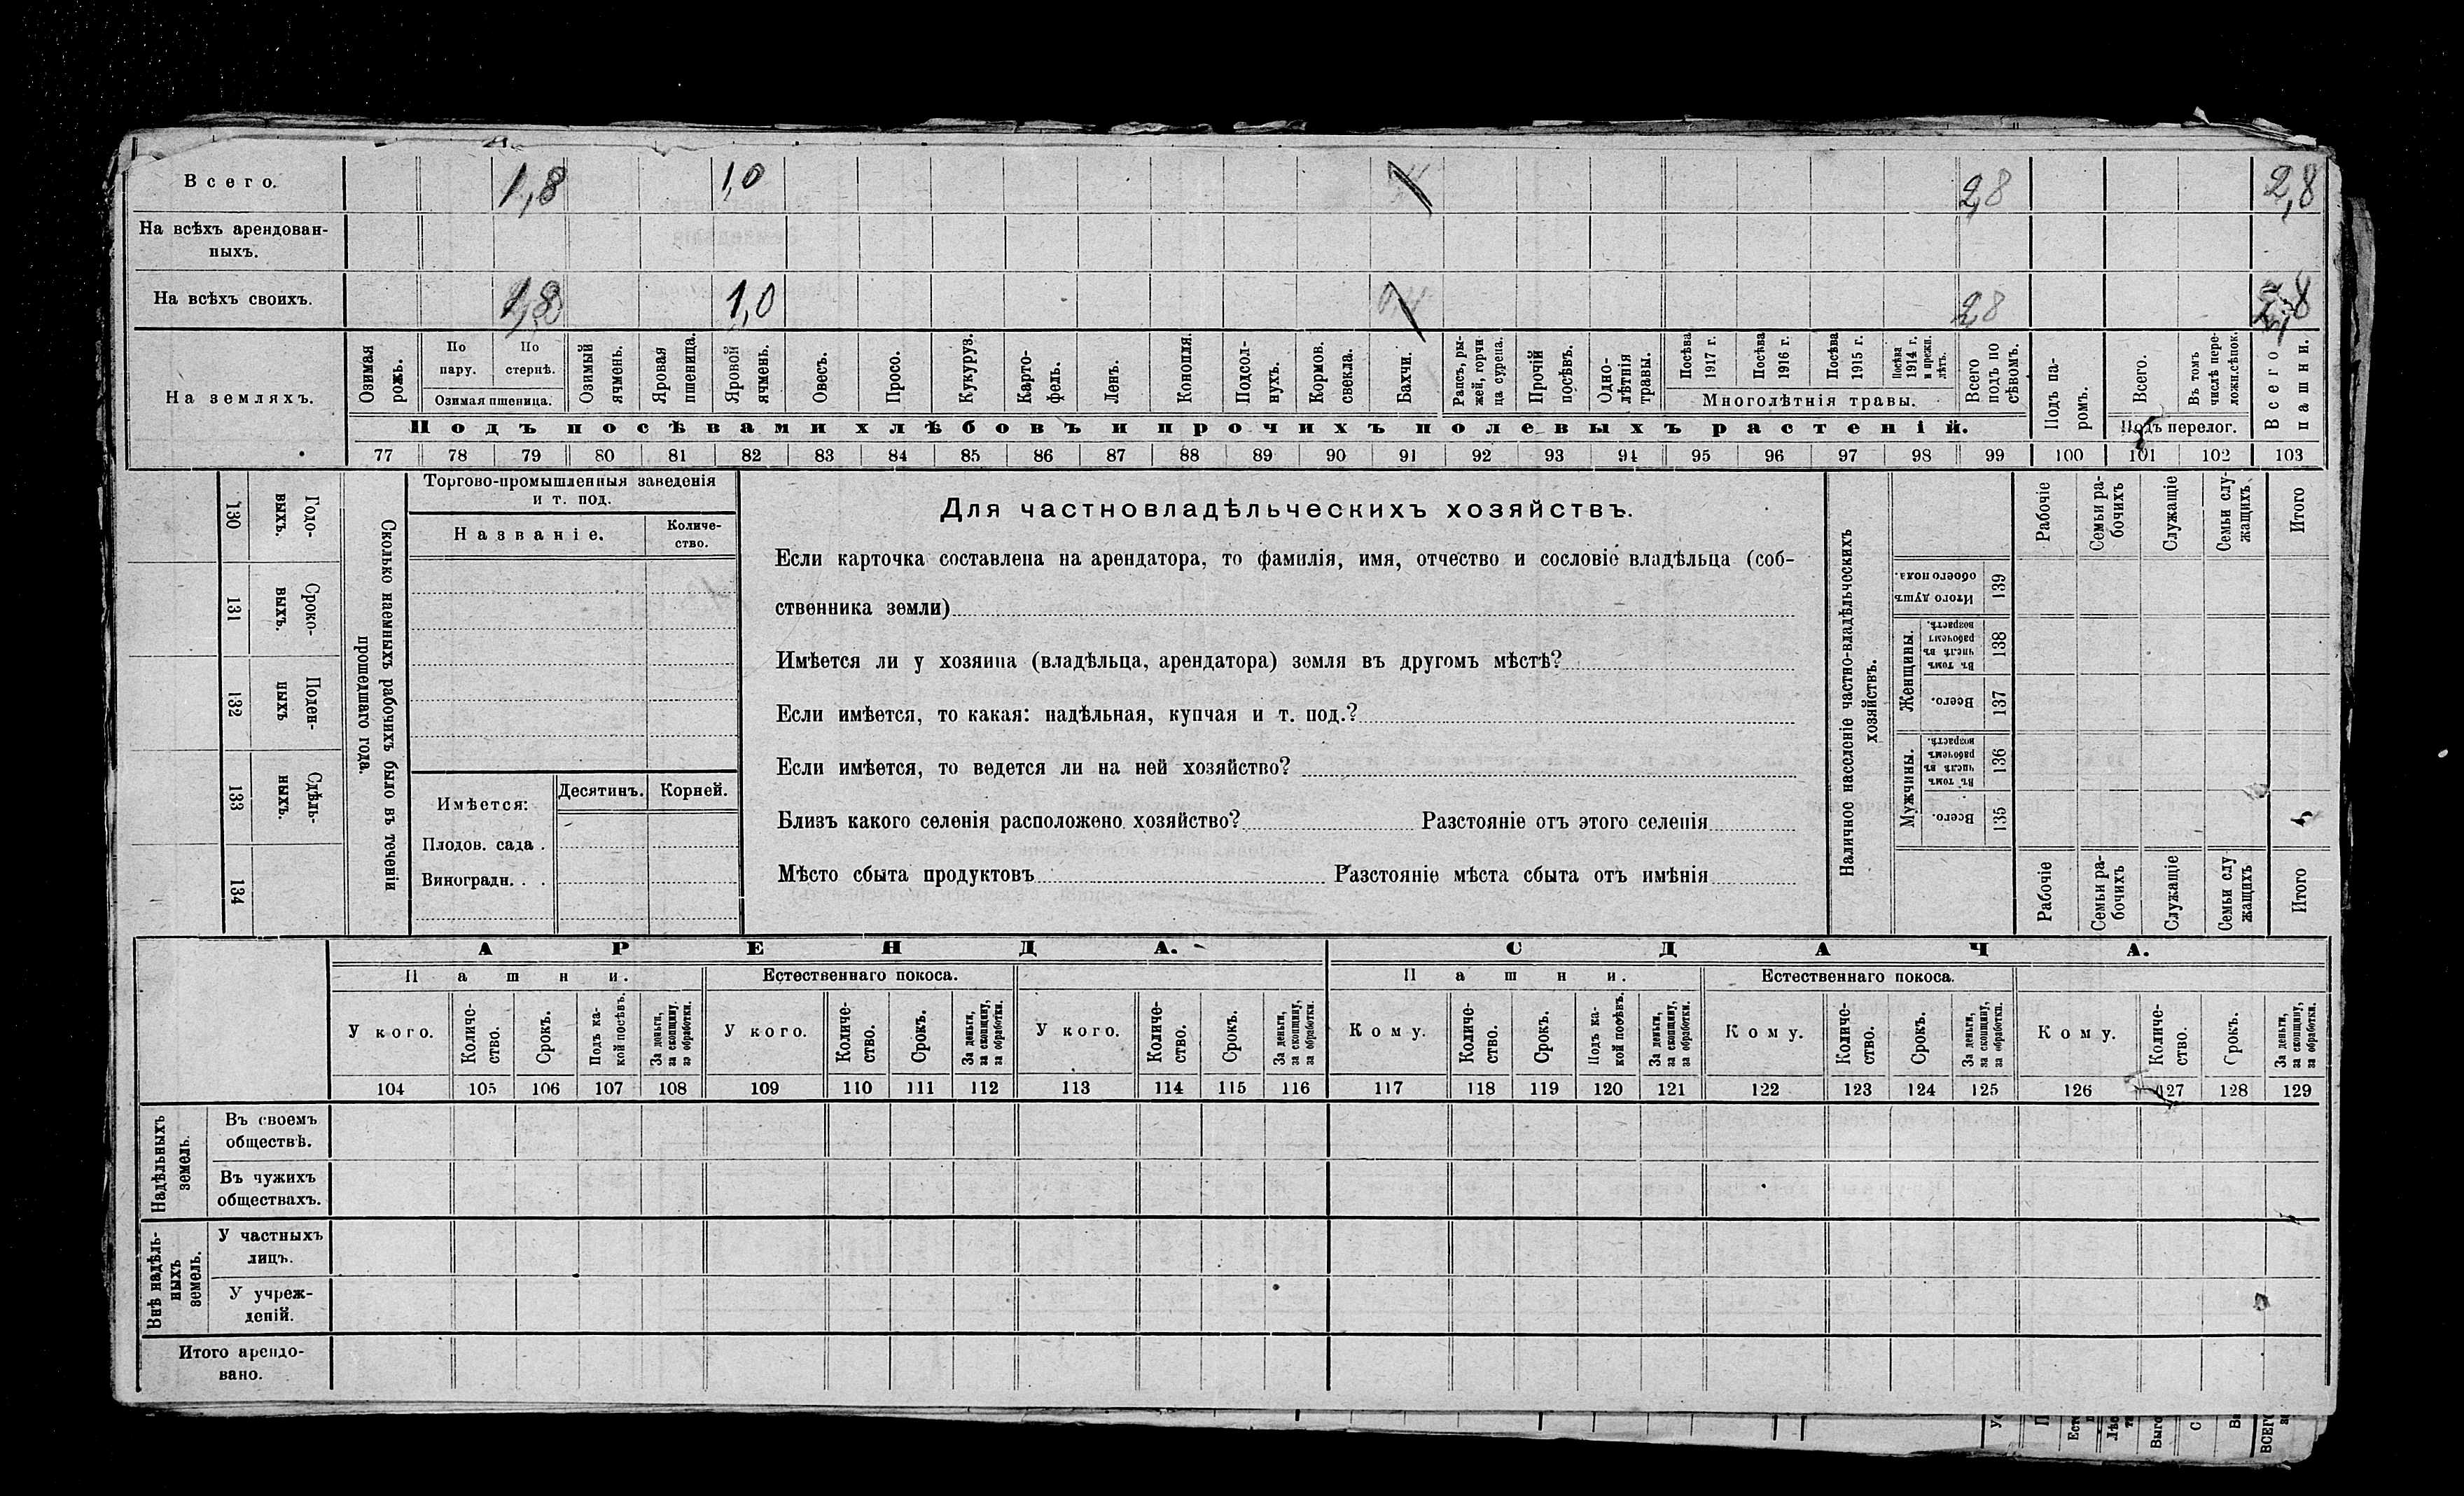 Всего. 1,8 1,0 2,8 2,8
На всѣхъ арендован-
ныхъ.
На всѣхъ своихъ. 1,8 1,0 2,8 2,8
На земляхъ.
Озимая рожь.
По пару.
По стернѣ.
Озимая пшеница.
Озимый ячмень.
Яровая пшеница.
Яровой ячмень.
Овесъ.
Просо.
Кукуруз.
Карто-
фель.
Ленъ.
Конопля.
Подсол-
нухъ.
Кормов. свекла.
Бахчи.
Рапсъ, ры-
жей, горчи-
ца сурепа.
Прочій посѣвъ.
Одно-
лѣтнія травы.
Посѣва 1917 г.
Посѣва 1916 г.
Посѣва 1915 г.
Посѣва 1914 г. и прежн. лѣтъ.
Многолѣтнія травы.
Всего подъ по
сѣвомъ.
Подъ па-
ромъ.
Всего.
Въ томъ числѣ пере-
ложн.сѣнок.
Подъ перелог.
Всего пашни.
Подъ посѣвами хлѣбовъ и прочихъ полевыхъ растеній.
77 78 79 80 81 82 83 84 85 86 87 88 89 90 91 92 93 94 95 96 97 98 99 100 101 102 103
130 Годо-
выхъ.
131 Сроко-
выхъ.
132 Поден-
ныхъ
133 Сдѣль-
ныхъ.
134
Сколько наемныхъ рабочихъ было въ теченіи
прошедшаго года.
Торгово-промышленныя заведенія
и т. под.
Названіе.
Количе-
ство.
Имѣется:
Десятинъ. Корней.
Плодов. сада .
Виноградн. . .
Для частновладѣльческихъ хозяйствъ.
Если карточка составлена на арендатора, то фамилія, имя, отчество и сословіе владѣльца (соб-
ственника земли)
Имѣется ли у хозяина (владѣльца, арендатора) земля въ другомъ мѣстѣ?
Если имѣется, то какая: надѣльная, купчая и т. под.?
Если имѣется, то ведется ли на ней хозяйство?
Близъ какого селенія расположено хозяйство? Разстояніе отъ этого селенія
Мѣсто сбыта продуктовъ Разстояніе мѣста сбыта отъ имѣнія
Наличное населеніе частно-владѣльческихъ
хозяйствъ.
Рабочіе
Семьи ра-
бочихъ
Служащіе
Семьи слу-
жащихъ
Итого
Итого душъ
обоего пола.
139
Женщины.
Въ томъ
числѣ въ
рабочемъ
возрастѣ.
138
Всего.
137
Мужчины.
Въ томъ
числѣ въ
рабочемъ
возрастѣ.
136
Всего.
135
Рабочіе
Семьи ра-
бочихъ
Служащіе
Семьи слу-
жащихъ
Итого
АРЕНДА. СДАЧА.
Пашни. Естественнаго покоса. Пашни. Естественнаго покоса.
У кого.
Количе-
ство.
Срокъ.
Подъ ка-
кой посѣвъ.
За деньги,
за скопщину,
за обработки.
У кого.
Количе-
ство.
Срокъ.
За деньги,
за скопщину,
за обработки.
У кого.
Количе-
ство.
Срокъ.
За деньги,
за скопщину,
за обработки.
Кому.
Количе-
ство.
Срокъ.
Подъ ка-
кой посѣвъ.
За деньги,
за скопщину,
за обработки.
Кому.
Количе-
ство.
Срокъ.
За деньги,
за скопщину,
за обработки.
Кому.
Количе-
ство.
Срокъ.
За деньги,
за скопщину,
за обработки.
104 105 106 107 108 109 110 111 112 113 114 115 116 117 118 119 120 121 122 123 124 125 126 127 128 129
Надѣльныхъ
земель.
Въ своемъ
обществѣ.
Въ чужихъ
обществахъ.
Внѣ надѣль-
ныхъ
земель.
У частныхъ
лицъ.
У учреж-
деній.
Итого арендо-
вано.